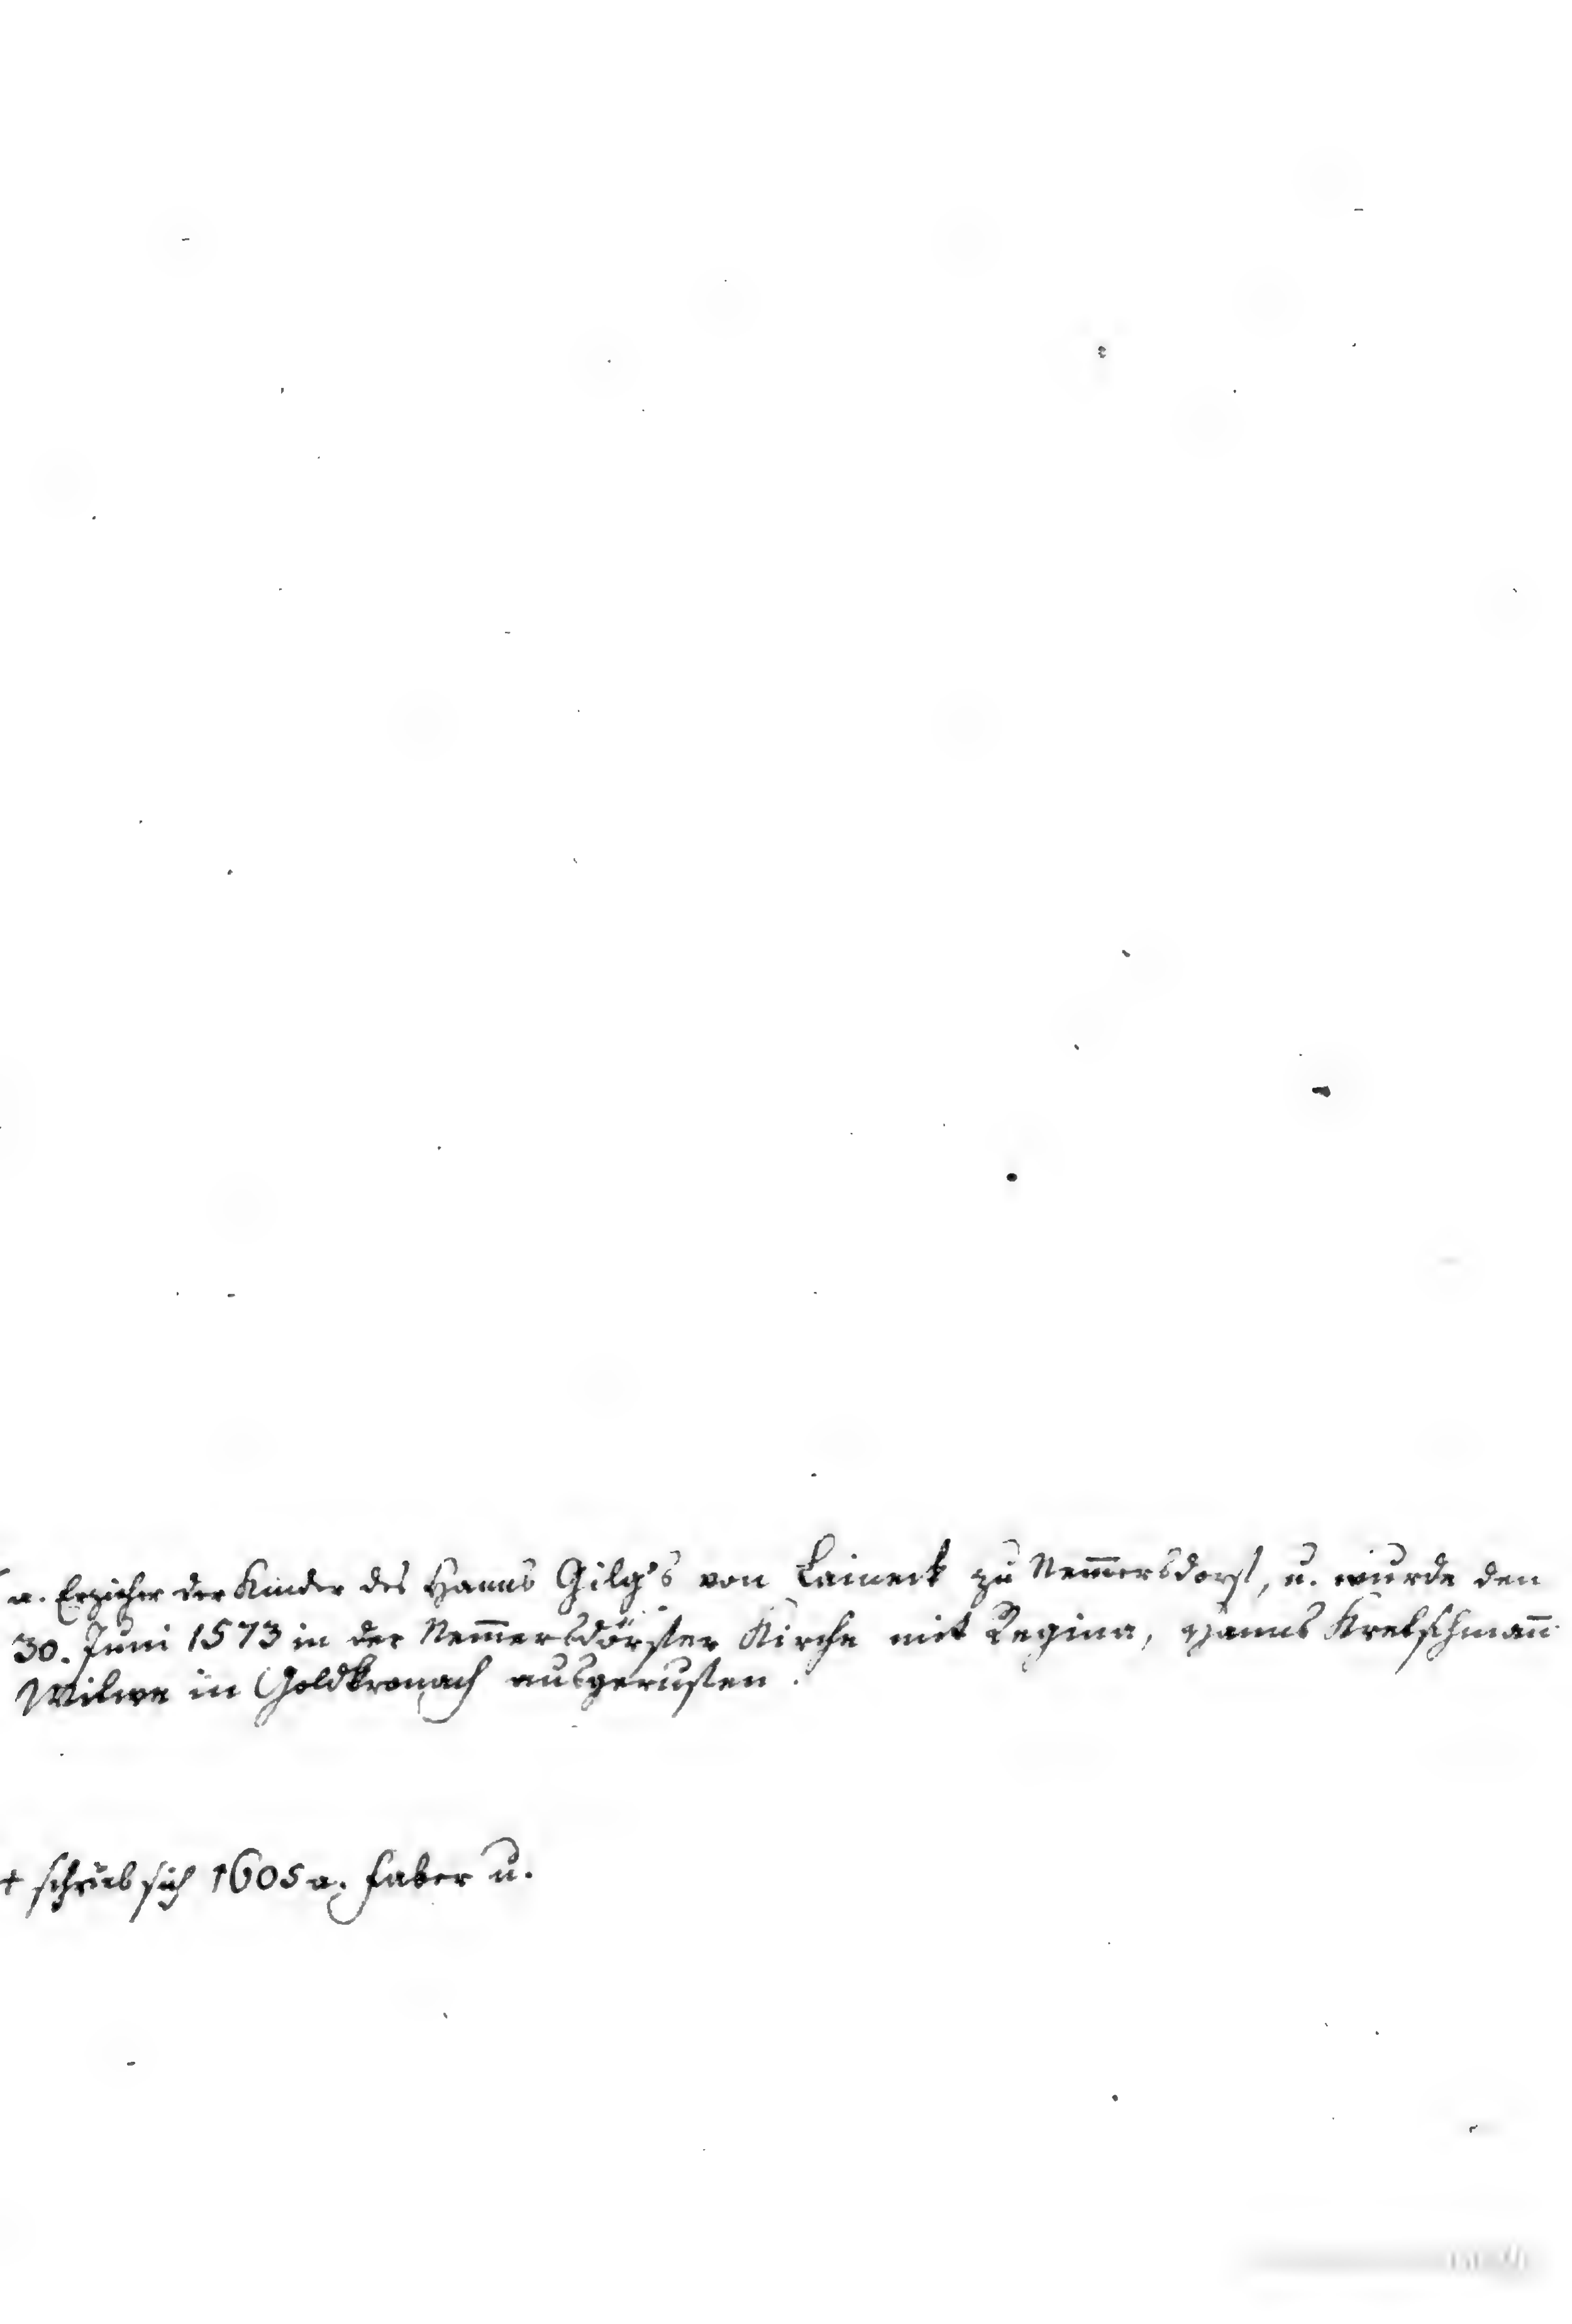 a. Erzieher der Kinder des Hanns Gilg's von Laineck zu Nem̅ersdorf, u. wurde den
30. Juni 1573 in der Nem̅ersdörfer Kirche mit Regina, Hanns Kretschman̅
Witwe in Goldkronach ausgerufen.
+ schrieb sich 1605 a. Faber u.